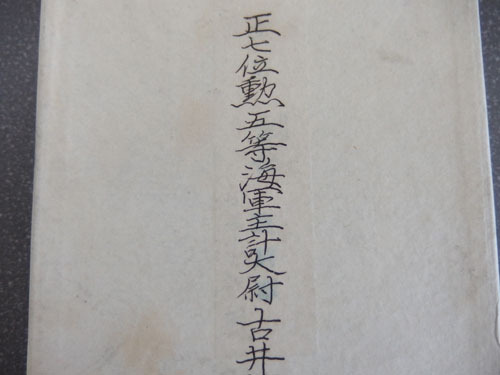 正七位勲五等海軍主計大尉古井